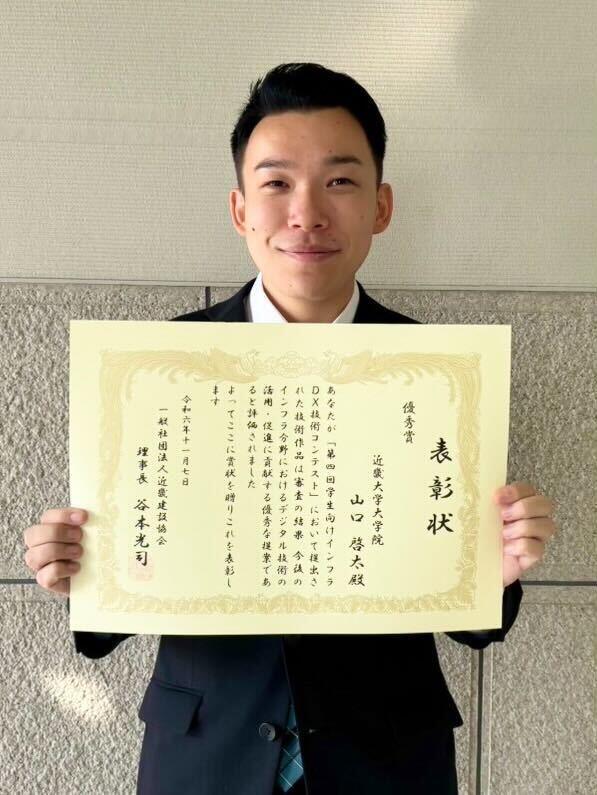 表彰状
優秀賞
近畿大学大学院
山口啓太殿
あなたが「第四回学生向けインフラ
DX技術コンテスト」において提出さ
れた技術作品は審査の結果 今後の
インフラ分野におけるデジタル技術の
活用・促進に貢献する優秀な提案であ
ると評価されました
よってここに賞状を贈りこれを表彰し
ます
令和六年十一月七日
一般社団法人近畿建設協会
理事長 谷本光司